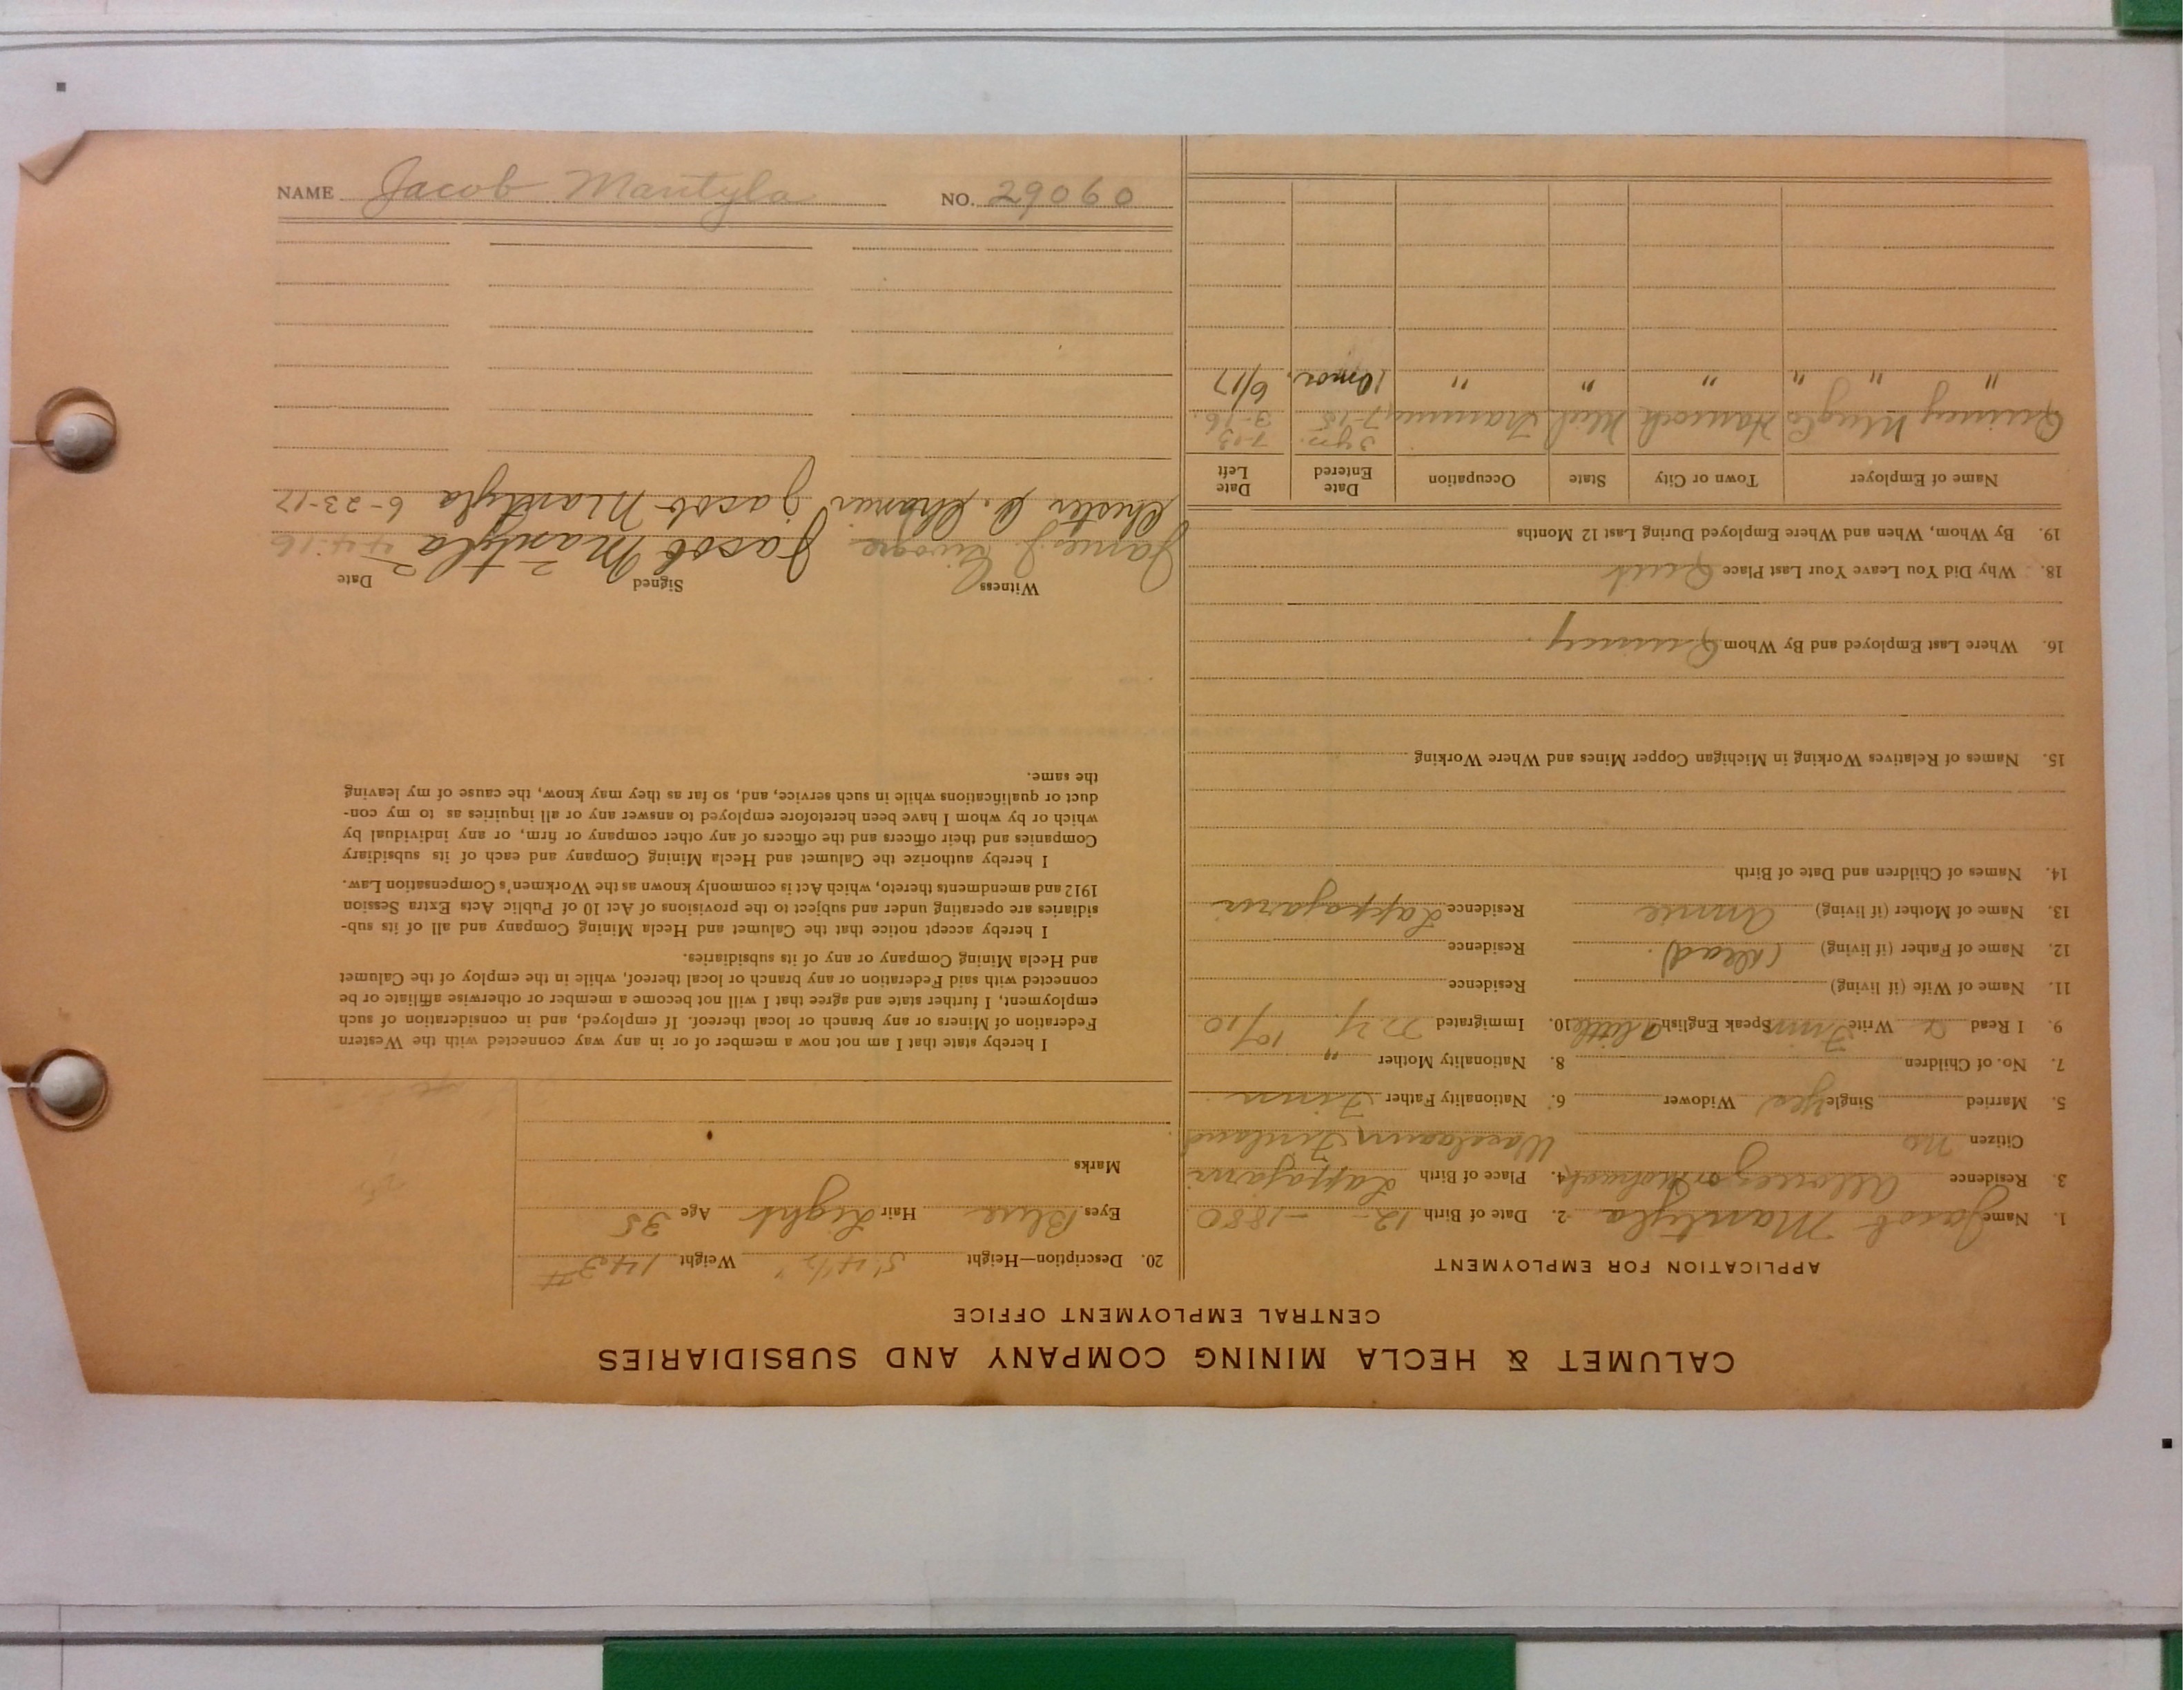 CALUMET & HECLA MINING COMPANY AND SUBSIDIARIES
CENTRAL EMPLOYMENT OFFICE
APPLICATION FOR EMPLOYMENT
1. Name Jacob Mantyla 2. Date of Birth 12 - - 1880
3. Residence Allouez or Mohawk 4. Place of Birth Lappajarvi
Citizen no Finland
5. Married Single yes Widower 6. Nationality Father Finn
7. No. of Children 8. Nationality Mother "
9. I Read & Write Finn Speak English a little 10. Immigrated N.Y. 10/10
11. Name of Wife (if living) Residence
12. Name of Father (if living) (dead). Residence
13. Name of Mother (if living) Annie Residence Lappajarvi
14. Names of Children and Date of Birth
15. Names of Relatives Working in Michigan Copper Mines and Where Working
16. Where Last Employed and By Whom Quincy
18. Why Did You Leave Your Last Place Quit
19. By Whom, When and Where Employed During Last 12 Months
Name of Employer Town or City State Occupation Date Entered Date Left
3 yrs. 7-13
Quincy Mng Co Hancock Mich Trammer 7-15 3-16
" " " " " " 10 mos. 6/17
20. Description—Height 5' 4½" Weight 143 #
Eyes Blue Hair Light Age 35
Marks
I hereby state that I am not now a member of or in any way connected with the Western
Federation of Miners or any branch or local thereof. If employed, and in consideration of such
employment, I further state and agree that I will not become a member or otherwise affiliate or be
connected with said Federation or any branch or local thereof, while in the employ of the Calumet
and Hecla Mining Company or any of its subsidiaries.
I hereby accept notice that the Calumet and Hecla Mining Company and all of its sub-
sidiaries are operating under and subject to the provisions of Act 10 of Public Acts Extra Session
1912 and amendments thereto, which Act is commonly known as the Workmen's Compensation Law.
I hereby authorize the Calumet and Hecla Mining Company and each of its subsidiary
Companies and their officers and the officers of any other company or firm, or any individual by
which or by whom I have been heretofore employed to answer any or all inquiries as to my con-
duct or qualifications while in such service, and, so far as they may know, the cause of my leaving
the same.
Witness Signed Date
James J. Jacob Mäntylä 4-4-16
Chester Jacob Mantyla 6-23-17
NAME Jacob Mantyla NO. 29060